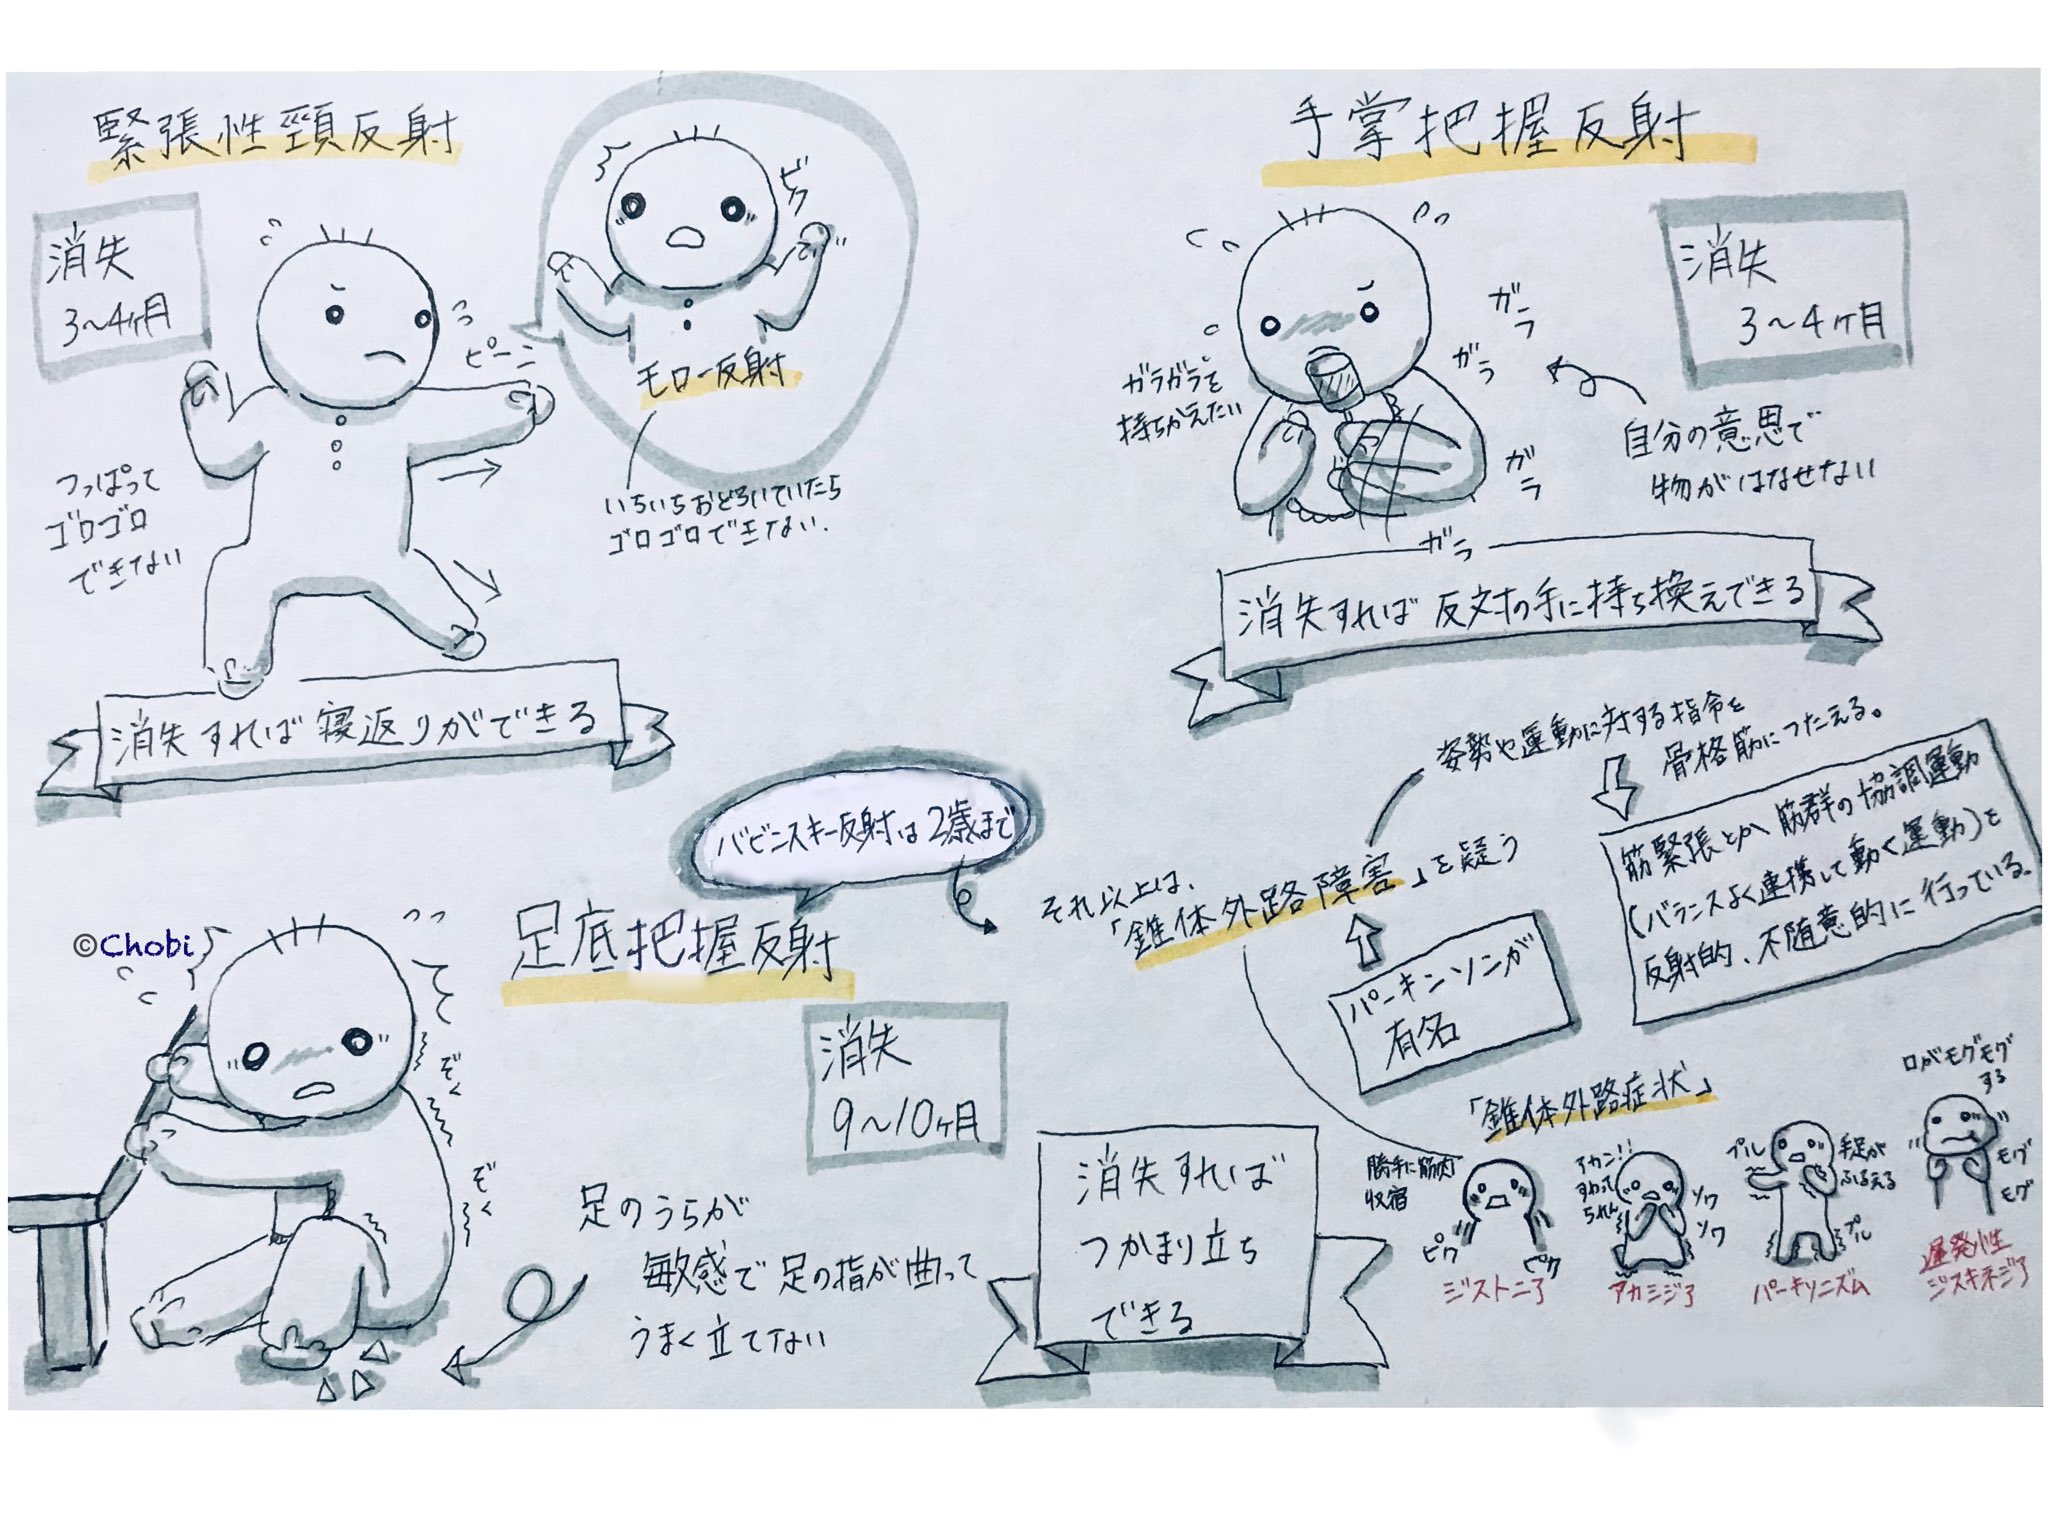 緊張性頸反射
消失
3～4ヶ月
ピーン
つっぱって
ゴロゴロ
できない
消失すれば寝返りができる
ビク
モロー反射
いちいちおどろいていたら
ゴロゴロできない.
手掌把握反射
消失
3～4ヶ月
ガラガラを
持ちかえたい
ガラ
ガラ
ガラ
ガラ
自分の意思で
物がはなせない
消失すれば反対の手に持ち換えできる
バビンスキー反射は2歳まで
足底把握反射
消失
9～10ヶ月
©Chobi
ぞく
ぞく
足のうらが
敏感で足の指が曲って
うまく立てない
消失すれば
つかまり立ち
できる
それ以上は、
「錐体外路障害」を疑う
姿勢や運動に対する指令を
骨格筋につたえる。
筋緊張とか筋群の協調運動
(バランスよく連携して動く運動)を
反射的、不随意的に行っている。
パーキンソンが
有名
「錐体外路症状」
勝手に筋肉
収宿
ピク
ピク
ジストニア
アカン!!
すわって
られん
ソワ
ソワ
アカシジア
プル
手足が
ふるえる
プル
パーキソニズム
口がモグモグ
する
モグ
モグ
遅発性
ジスキネジア